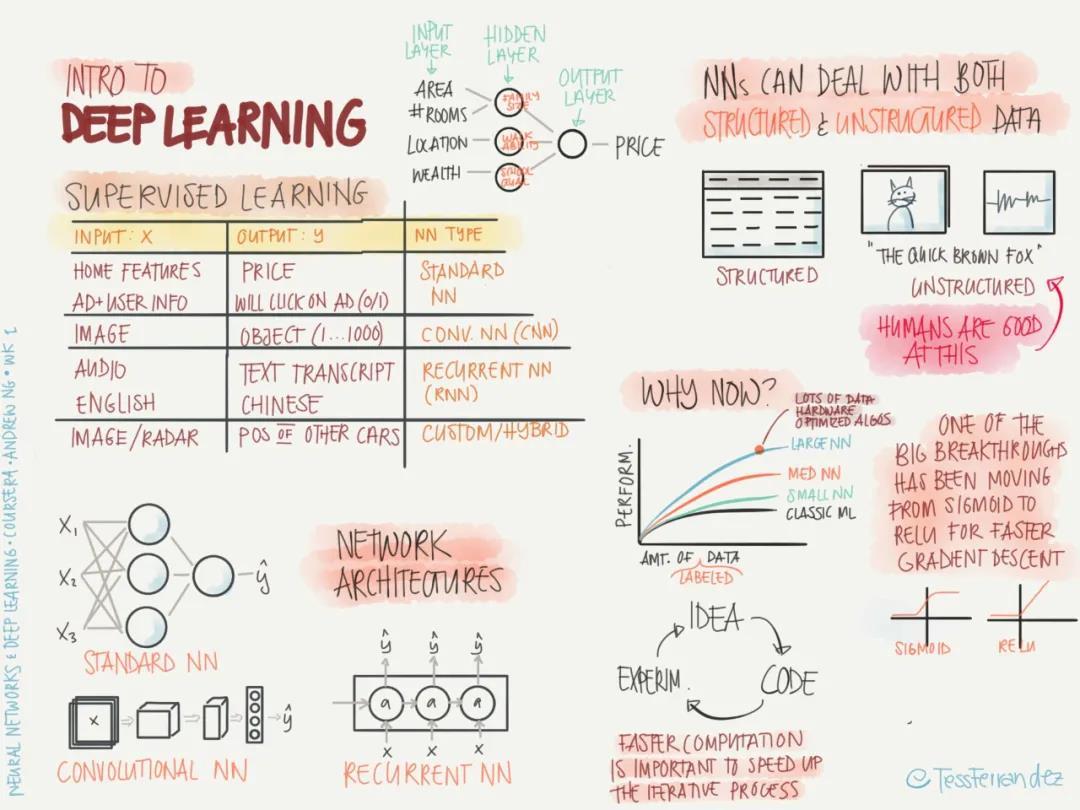 INTRO TO
DEEP LEARNING
INPUT LAYER
HIDDEN LAYER
OUTPUT LAYER
AREA
# ROOMS
LOCATION
WEALTH
FAMILY SIZE
WALK ABILITY
SCHOOL QUAL
PRICE
SUPERVISED LEARNING
INPUT: X OUTPUT: y NN TYPE
HOME FEATURES PRICE STANDARD
AD+USER INFO WILL CLICK ON AD (0/1) NN
IMAGE OBJECT (1...1000) CONV. NN (CNN)
AUDIO TEXT TRANSCRIPT RECURRENT NN
ENGLISH CHINESE (RNN)
IMAGE/RADAR POS OF OTHER CARS CUSTOM/HYBRID
NNs CAN DEAL WITH BOTH
STRUCTURED & UNSTRUCTURED DATA
STRUCTURED
"THE QUICK BROWN FOX"
UNSTRUCTURED
HUMANS ARE GOOD
AT THIS
WHY NOW?
LOTS OF DATA
HARDWARE
OPTIMIZED ALGOS
LARGE NN
MED NN
SMALL NN
CLASSIC ML
PERFORM.
AMT. OF DATA
LABELED
ONE OF THE
BIG BREAKTHROUGHS
HAS BEEN MOVING
FROM SIGMOID TO
RELU FOR FASTER
GRADIENT DESCENT
SIGMOID
RELU
X₁
X₂
X₃
ŷ
STANDARD NN
NETWORK
ARCHITECTURES
X
ŷ
CONVOLUTIONAL NN
ŷ ŷ ŷ
a a a
X X X
RECURRENT NN
IDEA
CODE
EXPERIM.
FASTER COMPUTATION
IS IMPORTANT TO SPEED UP
THE ITERATIVE PROCESS
NEURAL NETWORKS & DEEP LEARNING • COURSERA • ANDREW NG • WK 1
@TessFerrandez